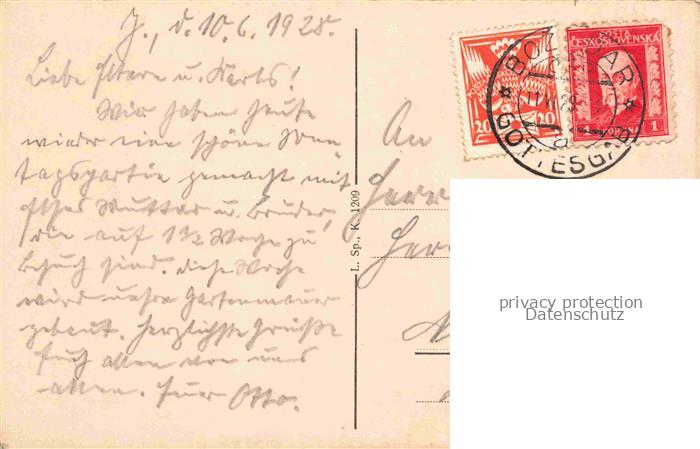 J., d. 10.6.1928.
Liebe Eltern u. Karls!
Wir haben heute
wieder eine schöne Sonn-
tagspartie gemacht mit
Mutter u. Bruder,
die auf 1½ Woche zu
Besuch sind. Diese Woche
wird unsre Gartenmauer
gebaut. Herzlichste Grüße
Euch allen von uns
allen. Euer Otto.
L. Sp., K. 1209
An
Herrn
20 20
POSTA
ČESKOSLOVENSKÁ
1
BO AR
GOTTESGAB
privacy protection
Datenschutz